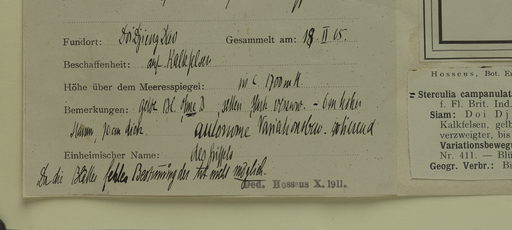 Fundort: Doi Djieng Dao Gesammelt am: 18. II 05.
Beschaffenheit: auf Kalkfelsen
Höhe über dem Meeresspiegel: m c. 1700 m h
Bemerkungen: gelbe Bl. ohne B selten stark verzw. – 6 m hoher
Stamm, 30 cm dick. autonome Variationsbew. während
Einheimischer Name: des
Da die Blätter fehlen Bestimmung der Art nicht möglich.
Ded. Hosseus X. 1911.
Hosseus, Bot. Er
= Sterculia campanulat
f. Fl. Brit. Ind.
Siam: Doi Dj
Kalkfelsen, gelb
verzweigter, bis
Variationsbeweg
Nr. 411. — Blü
Geogr. Verbr.: Bi